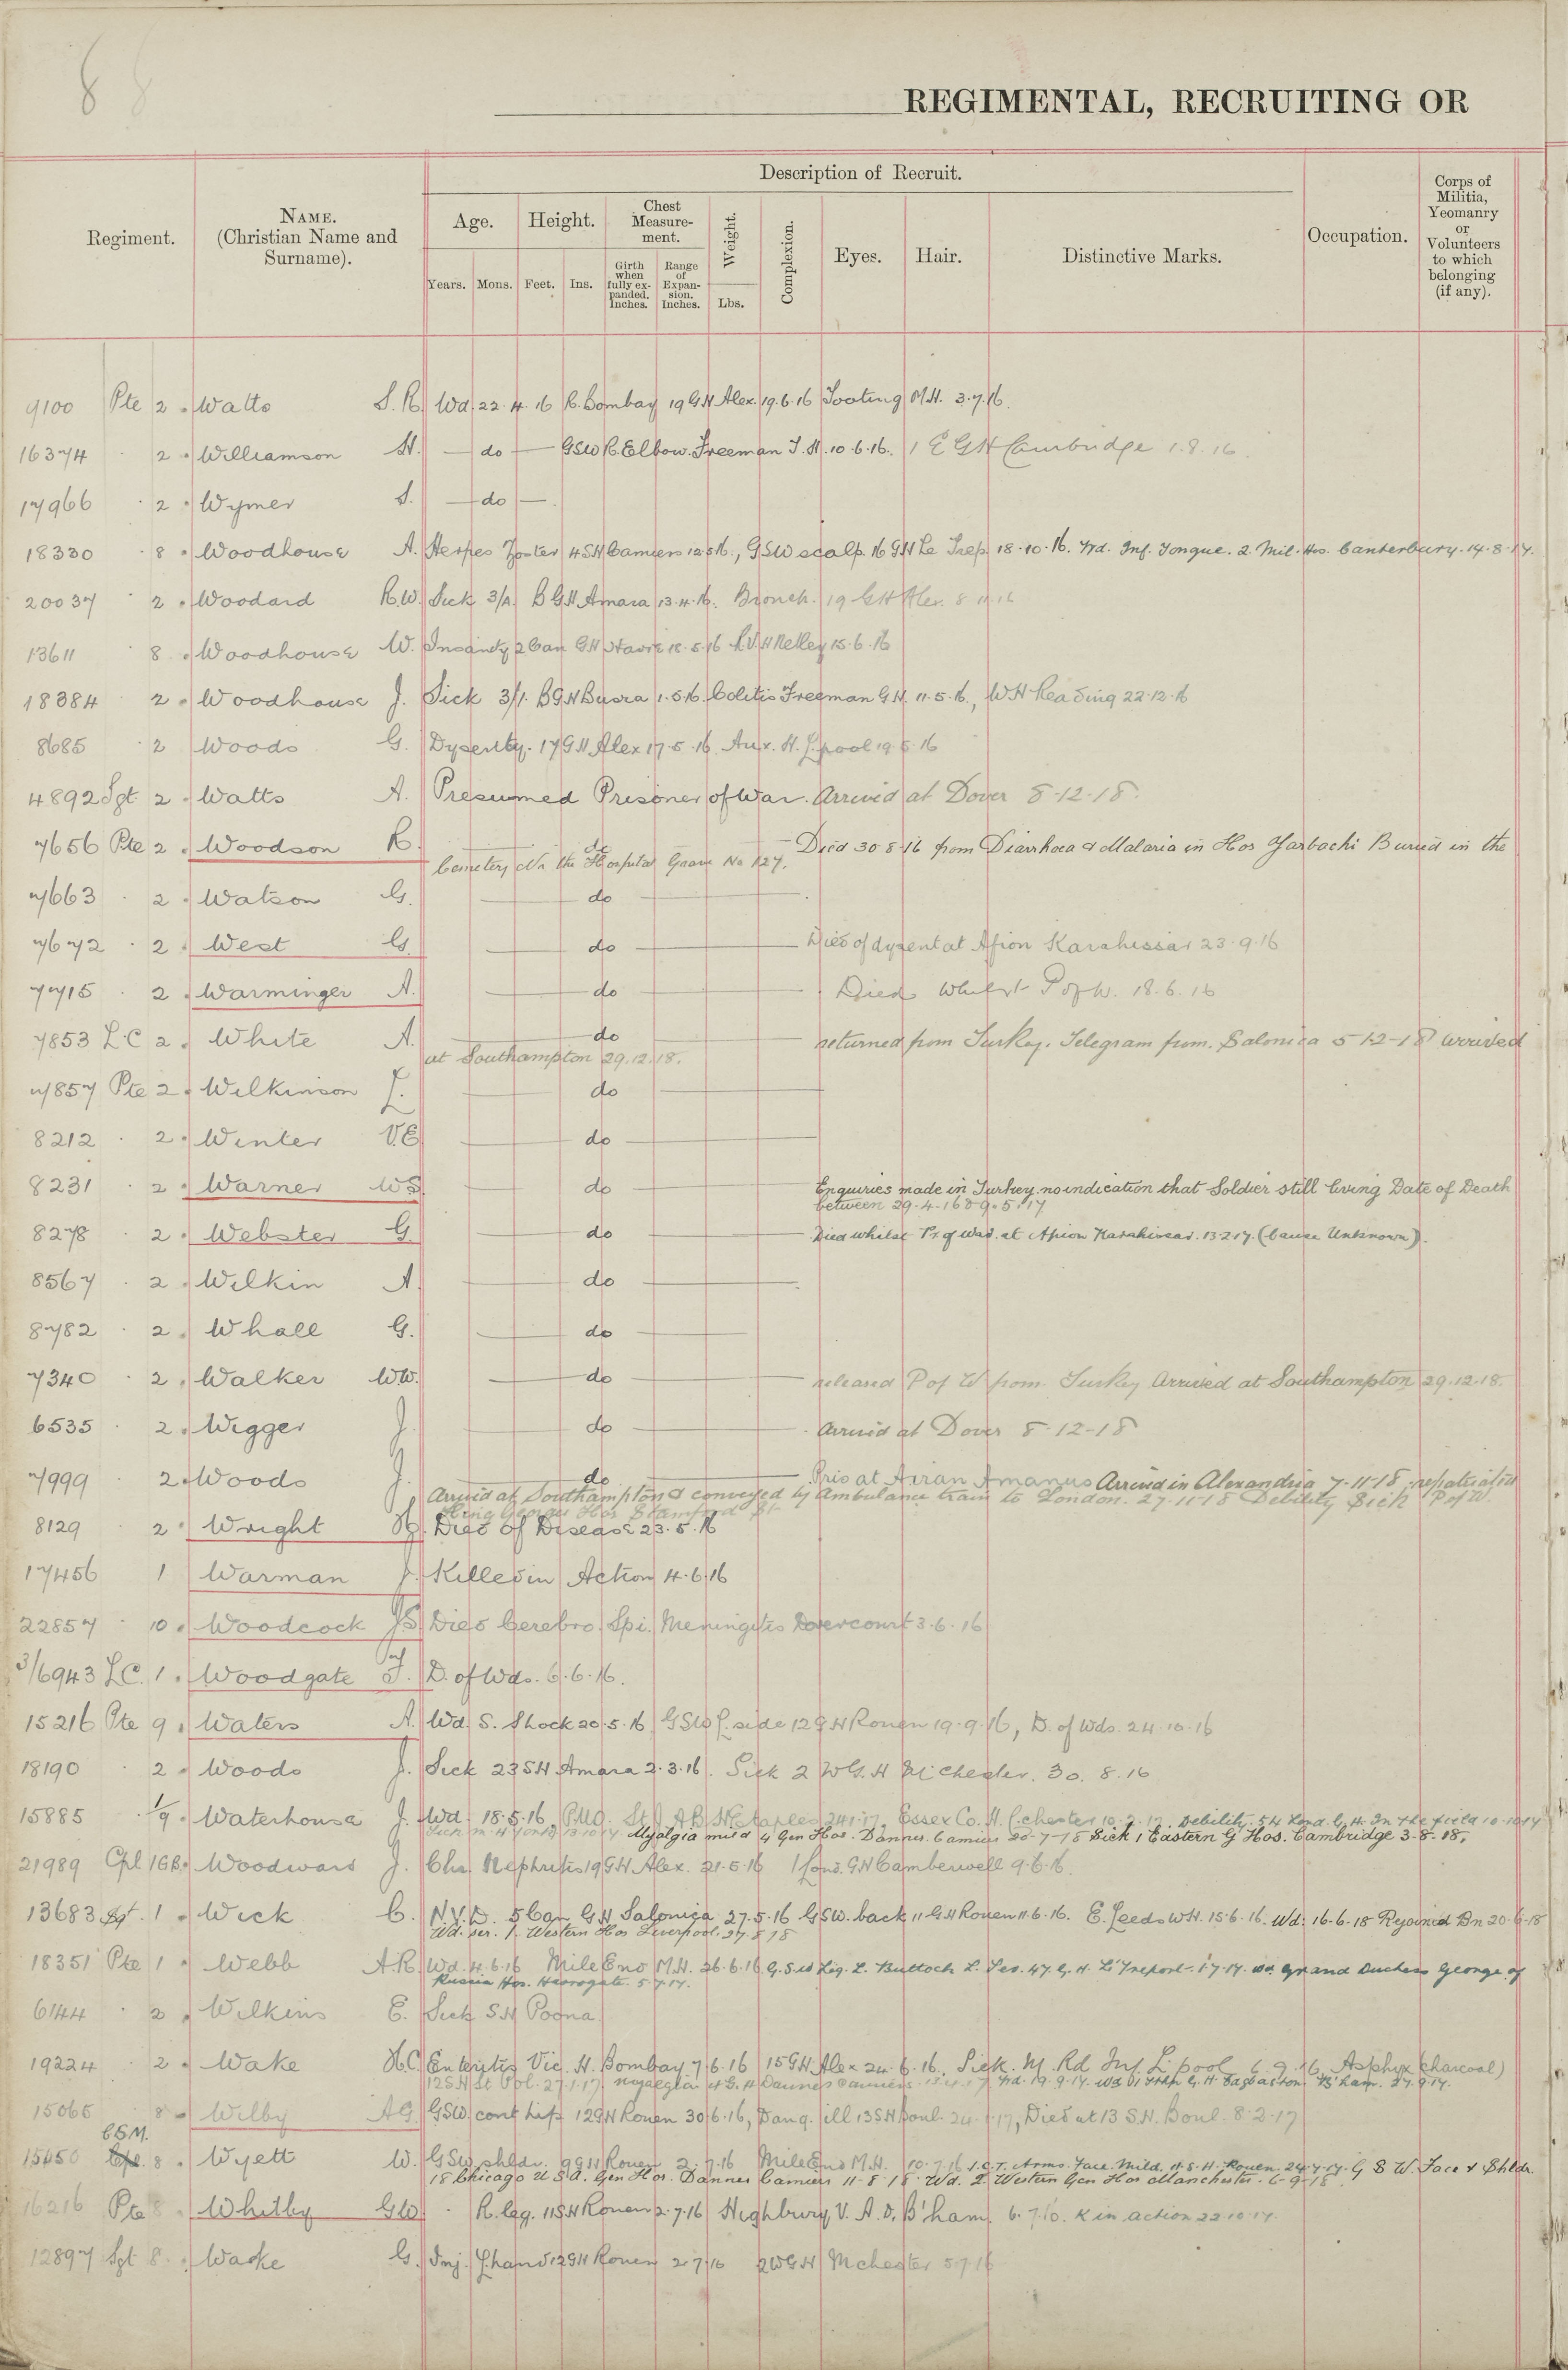 8
REGIMENTAL, RECRUITING OR
Regiment.
NAME.
(Christian Name and
Surname).
Description of Recruit.
Age.
Height.
Chest
Measure-
ment.
Weight.
Complexion.
Eyes.
Hair.
Distinctive Marks.
Occupation.
Corps of
Militia,
Yeomanry
or
Volunteers
to which
belonging
(if any).
Years.
Mons.
Feet.
Ins.
Girth
when
fully ex-
panded.
Inches.
Range
of
Expan-
sion.
Inches.
Lbs.
9100 Pte 2 Watts S.R. Wd 22.4.16 R. Bombay 19 GH Alex. 19.6.16 Tooting M.H. 3.7.16.
16374 · 2 Williamson H. — do — GSW R. Elbow. Freeman T.H. 10.6.16. 1 E GH Cambridge 1.8.16.
17966 · 2 Wymer S. — do —
18330 · 8 Woodhouse A. Herpes Zoster 4SH Camiers 12.5.16., GSW scalp. 16 GH Le Trep. 18.10.16. Wd. Inf. Tongue. 2. Mil. Hos. Canterbury. 14.8.17.
20037 · 2 Woodard R.W. Sick 3/A. BGH Amara 13.4.16. Bronch. 19 GH Alex. 8.11.16
13611 · 8 Woodhouse W. Insanity 2 Can GH Havre 18.5.16 R.V.H Netley 15.6.16
18384 · 2 Woodhouse J. Sick 3/1. BGH Busra 1.5.16. Colitis Freeman G.H. 11.5.16., WH Reading 22.12.16
8685 · 2 Woods G. Dysentry. 17 GH Alex 17.5.16. Aux. H. L'pool 19.5.16
4892 Sgt 2 Watts A. Presumed Prisoner of War. Arrived at Dover 8-12-18.
7656 Pte 2 Woodson R. do — Died 30-8-16 from Diarrhoea & Malaria in Hos Yarbachi Buried in the
Cemetery Nr. the Hospital Grave No 127.
7663 · 2 Watson G. — do —
7672 · 2 West G. — do — Died of dysent at Afion Karahissar 23.9.16
7715 · 2 Warminger A. — do — Died whilst P of W. 18.6.16
7853 L.C 2 White A. — do — returned from Turkey. Telegram from. Salonica 5-12-18 arrived
at Southampton 29.12.18.
7857 Pte 2 Wilkinson F. — do —
8212 · 2 Winter V.E — do —
8231 · 2 Warner W S. — do — Enquiries made in Turkey no indication that Soldier still living Date of Death
between 29-4-16 & 9.5.17
8278 · 2 Webster G. — do — Died whilst Pr of War. at Afion Karahissar. 13.2.17. (Cause Unknown).
8567 · 2 Wilkin A. — do —
8782 · 2 Whall G. — do —
7340 · 2 Walker W.W. — do — released P of W from. Turkey Arrived at Southampton 29.12.18.
6535 · 2 Wigger J. — do — Arrived at Dover 8-12-18
7999 · 2 Woods J. — do — Pris at Airan Amanus Arrived in Alexandria 7-11-18. repatriated
Arrived at Southampton & conveyed by Ambulance train to London. 27-11-18 Debility Sick P of W.
King Georges Hos Stamford St
8129 · 2 Wright H. Died of Disease 23.5.16
17456 1 Warman J. Killed in Action 4.6.16
22857 · 10 Woodcock J S. Died Cerebro. Spi. Meningitis Dovercourt 3.6.16
3/6943 L.C. 1 Woodgate F. D. of Wds. 6.6.16.
15216 Pte 9 Waters A. Wd. S. Shock 20.5.16 GSW L. side 12 GH Rouen 19.9.16, D. of Wds. 24.10.16
18190 · 2 Woods J. Sick 23SH Amara 2.3.16. Sick 2 W G.H M'chester. 30.8.16
15885 · 1/9 Waterhouse J. Wd. 18.5.16, St J A B H Etaples 24.1.17, Essex Co. H. C'chester 10.2.17. Debility. 54 Lond. G.H. In the field 10.10.17
Myalgia mild 4 Gen Hos. Dannes. Camiers 20-7-18 Sick 1 Eastern G Hos. Cambridge 3-8-18,
21989 Cpl 1GB. Woodward J. Chr. Nephritis 19 GH Alex. 21.5.16 1 Lond. GH Camberwell 9.6.16.
13683 Sgt. 1 Wick C. N.Y.D. 5 Can GH Salonica 27.5.16 GSW. back 11 GH Rouen 11.6.16. E. Leeds WH. 15.6.16. Wd. 16-6-18 Rejoined Bn 20-6-18
Wd. ser. 1. Western Hos Liverpool. 27.8.18
18351 Pte 1 Webb A.R. Wd. 4.6.16 Mile End M.H. 26.6.16 G.S.W Leg. L. Buttock L. Sev. 47 G.H. Le Treport. 1.7.17. Grand Duchess George of
Russia Hos. Harrogate. 5.7.17.
6144 · 2 Wilkins E. Sick S.H Poona
19224 · 2 Wake H.C. Enteritis Vic. H. Bombay 7.6.16 15GH Alex 24.6.16. Sick. M. Rd Inf. L'pool 6.9.16. Asphyx (charcoal)
12SH St Pol. 27.1.17. Myalgia 4 G.H Dannes Camiers Wd. 19.9.17. G.H. Edgbaston B'ham. 27.9.17.
15065 · 8 Wilby A G. GSW cont hip 12GH Rouen 30.6.16, Dang. ill 13SH Boul. 24.1.17, Died at 13 S.H. Boul. 8.2.17
CSM.
15450 Cpl. 8 Wyett W. GSW shldr. 9 GH Rouen 2.7.16 Mile End M.H. 10.7.16 I.C.T. Arms. Face. Mild. 11.S.H. Rouen. 24.7.17. G S W. Face & Shldr.
18 Chicago U S A. Gen Hos. Dannes Camiers 11-8-18. Wd. 2. Western Gen Hos Manchester. 6-9-18.
16216 Pte 8 Whitby G W. · R. leg. 11SH Rouen 2.7.16 Highbury V.A.D. B'ham. 6.7.16. K in action 22.10.17.
12897 Sgt 8 Wacke G. Inj. L. hand 12GH Rouen 2.7.16 2WGH M'chester 5.7.16